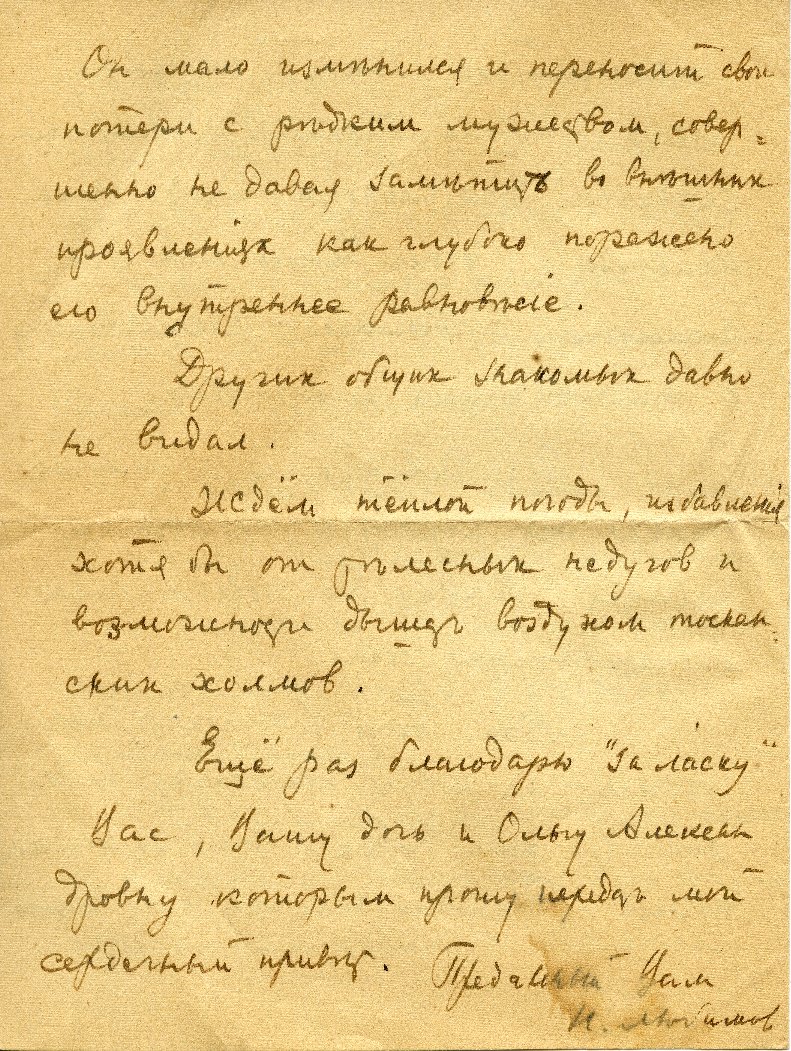 Он мало измѣнился и переносит свои
потери с рѣдким мужеством, совер-
шенно не давая замѣтить во внѣшних
проявленіях как глубоко поражено
его внутреннее равновѣсіе.
Других общих знакомых давно
не видал.
Ждём тёплой погоды, избавленія
хотя бы от тѣлесных недугов и
возможности дышать воздухом тоскан-
ских холмов.
Ещё раз благодарю "за ласку"
Вас, Вашу дочь и Ольгу Алексан
дровну которым прошу передать мой
сердечный привѣт. Преданный Вам
Н. Любимов